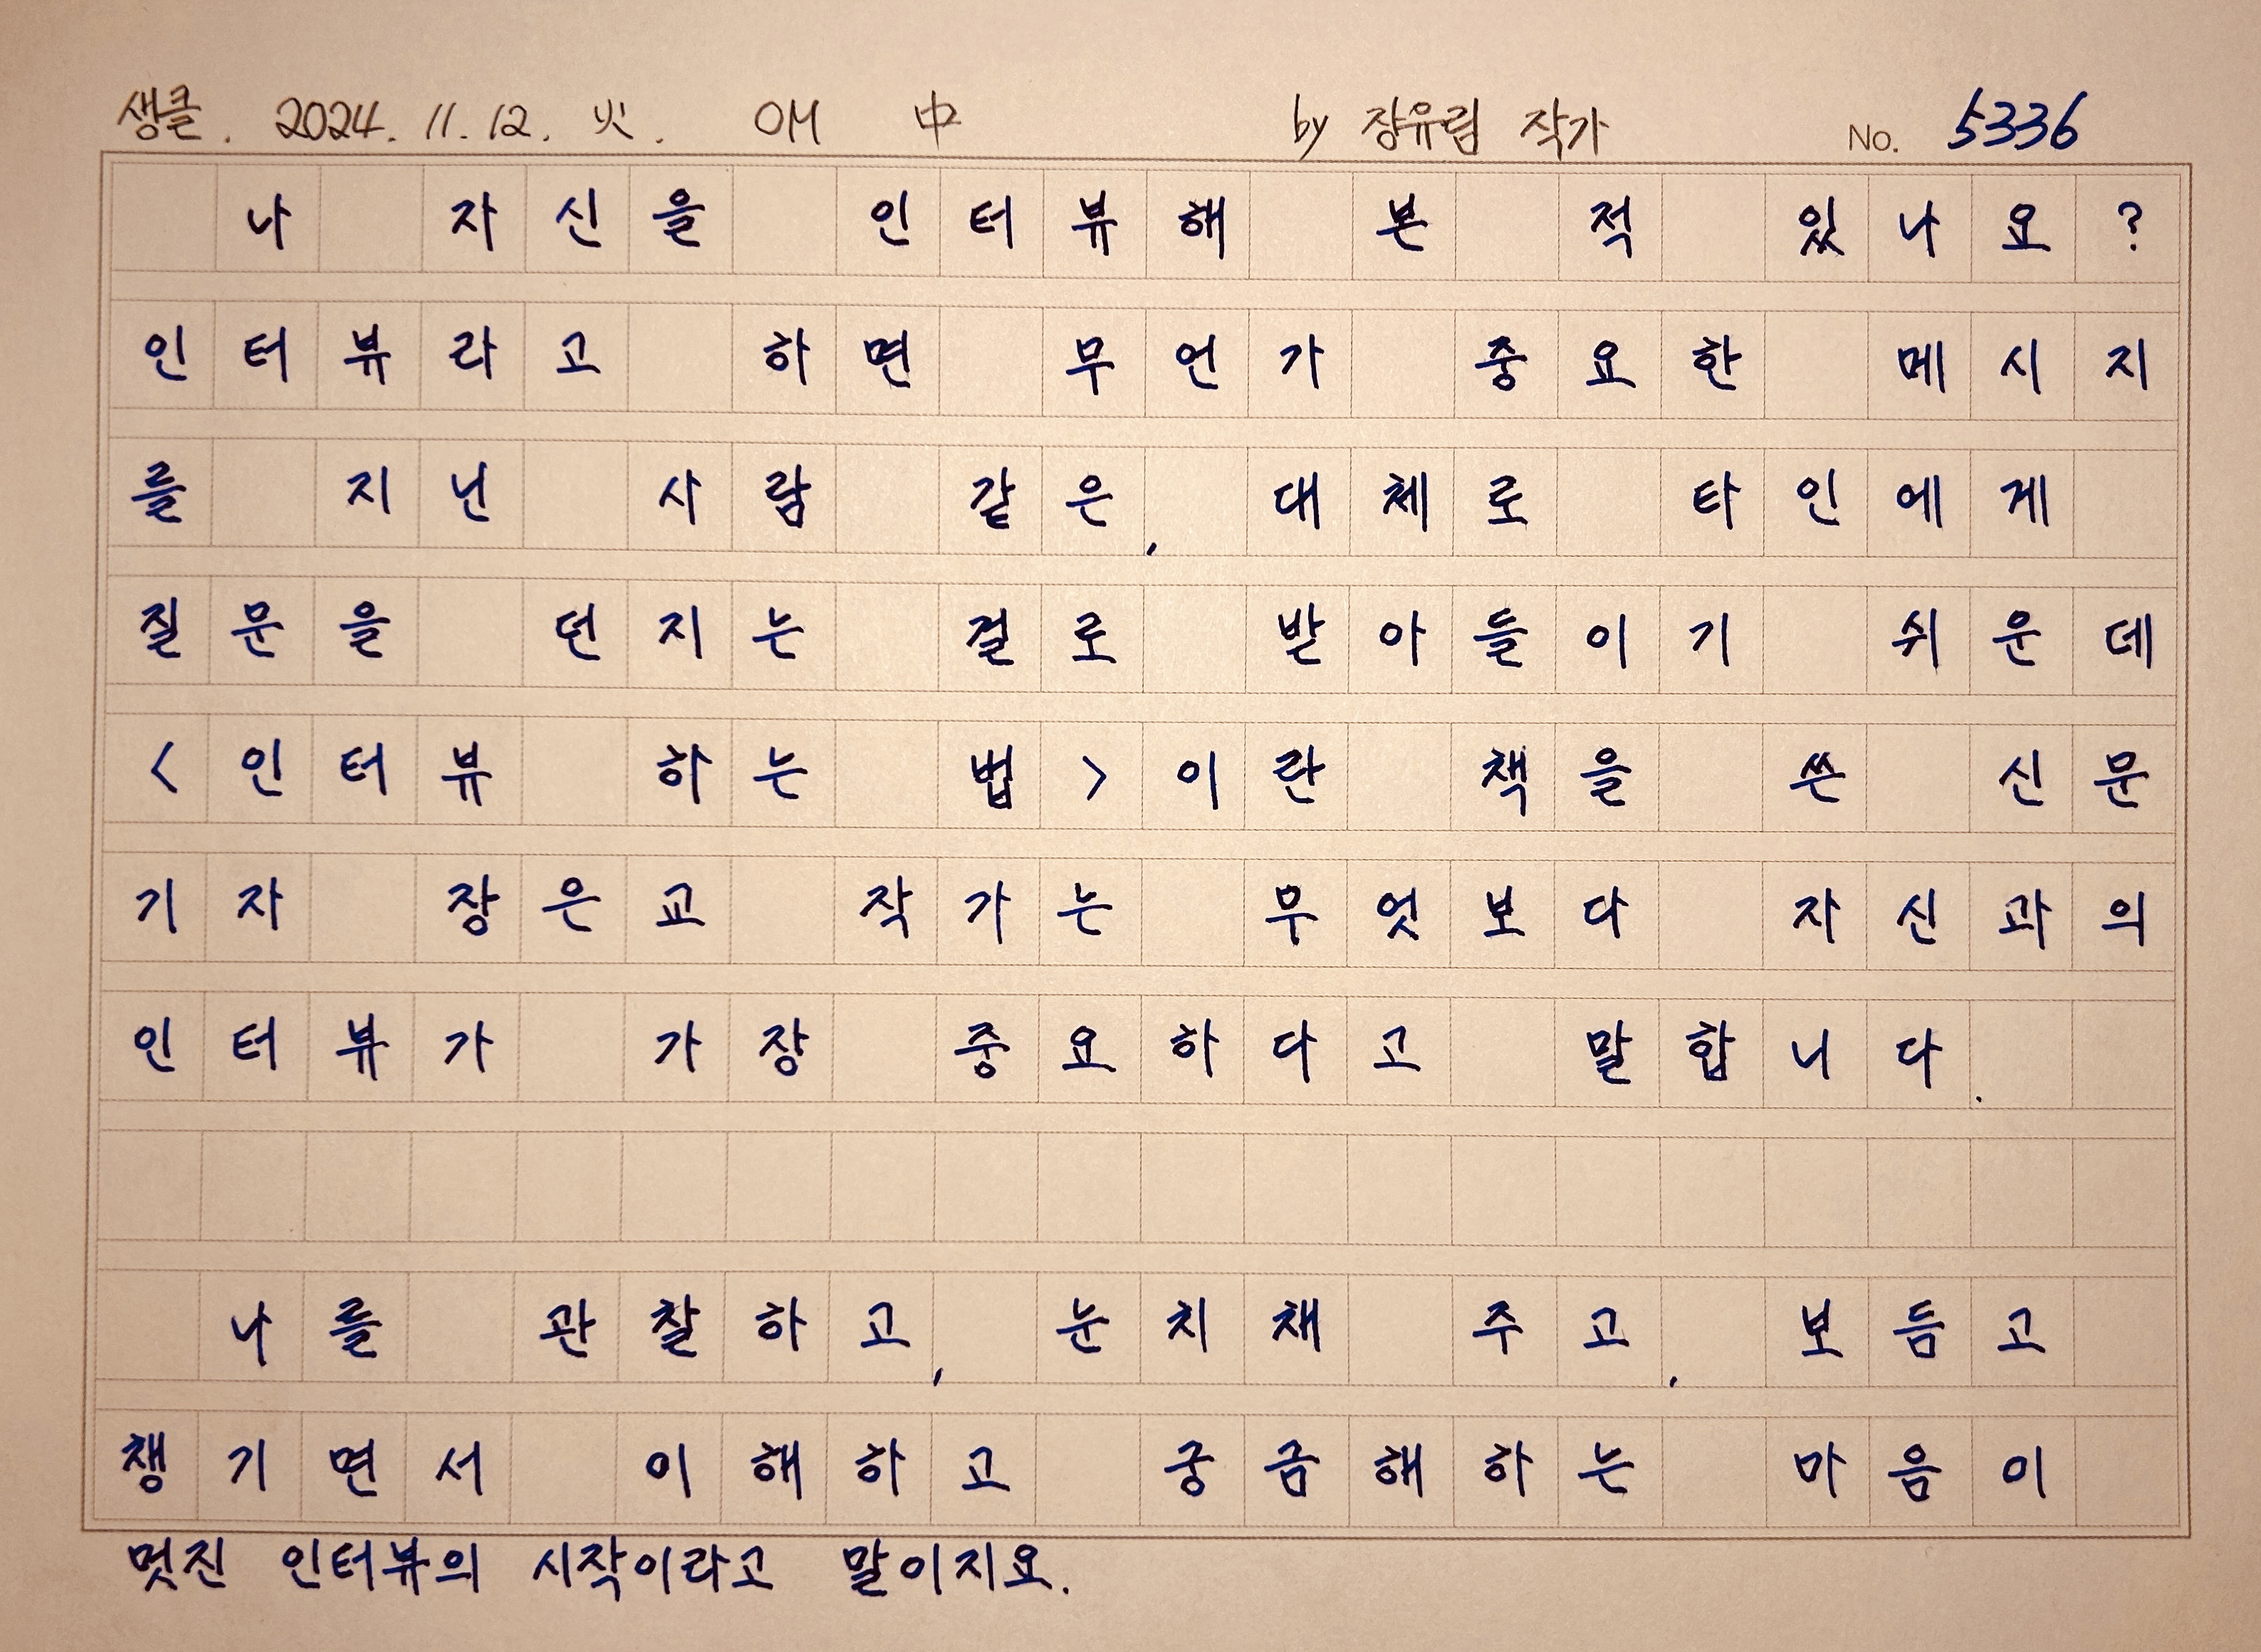 생클. 2024. 11. 12. 火. OM 中 by 장유림 작가 No. 5336
나 자신을 인터뷰해 본 적 있나요?
인터뷰라고 하면 무언가 중요한 메시지
를 지닌 사람 같은, 대체로 타인에게
질문을 던지는 걸로 받아들이기 쉬운데
<인터뷰 하는 법>이란 책을 쓴 신문
기자 장은교 작가는 무엇보다 자신과의
인터뷰가 가장 중요하다고 말합니다.
나를 관찰하고, 눈치채 주고, 보듬고
챙기면서 이해하고 궁금해하는 마음이
멋진 인터뷰의 시작이라고 말이지요.